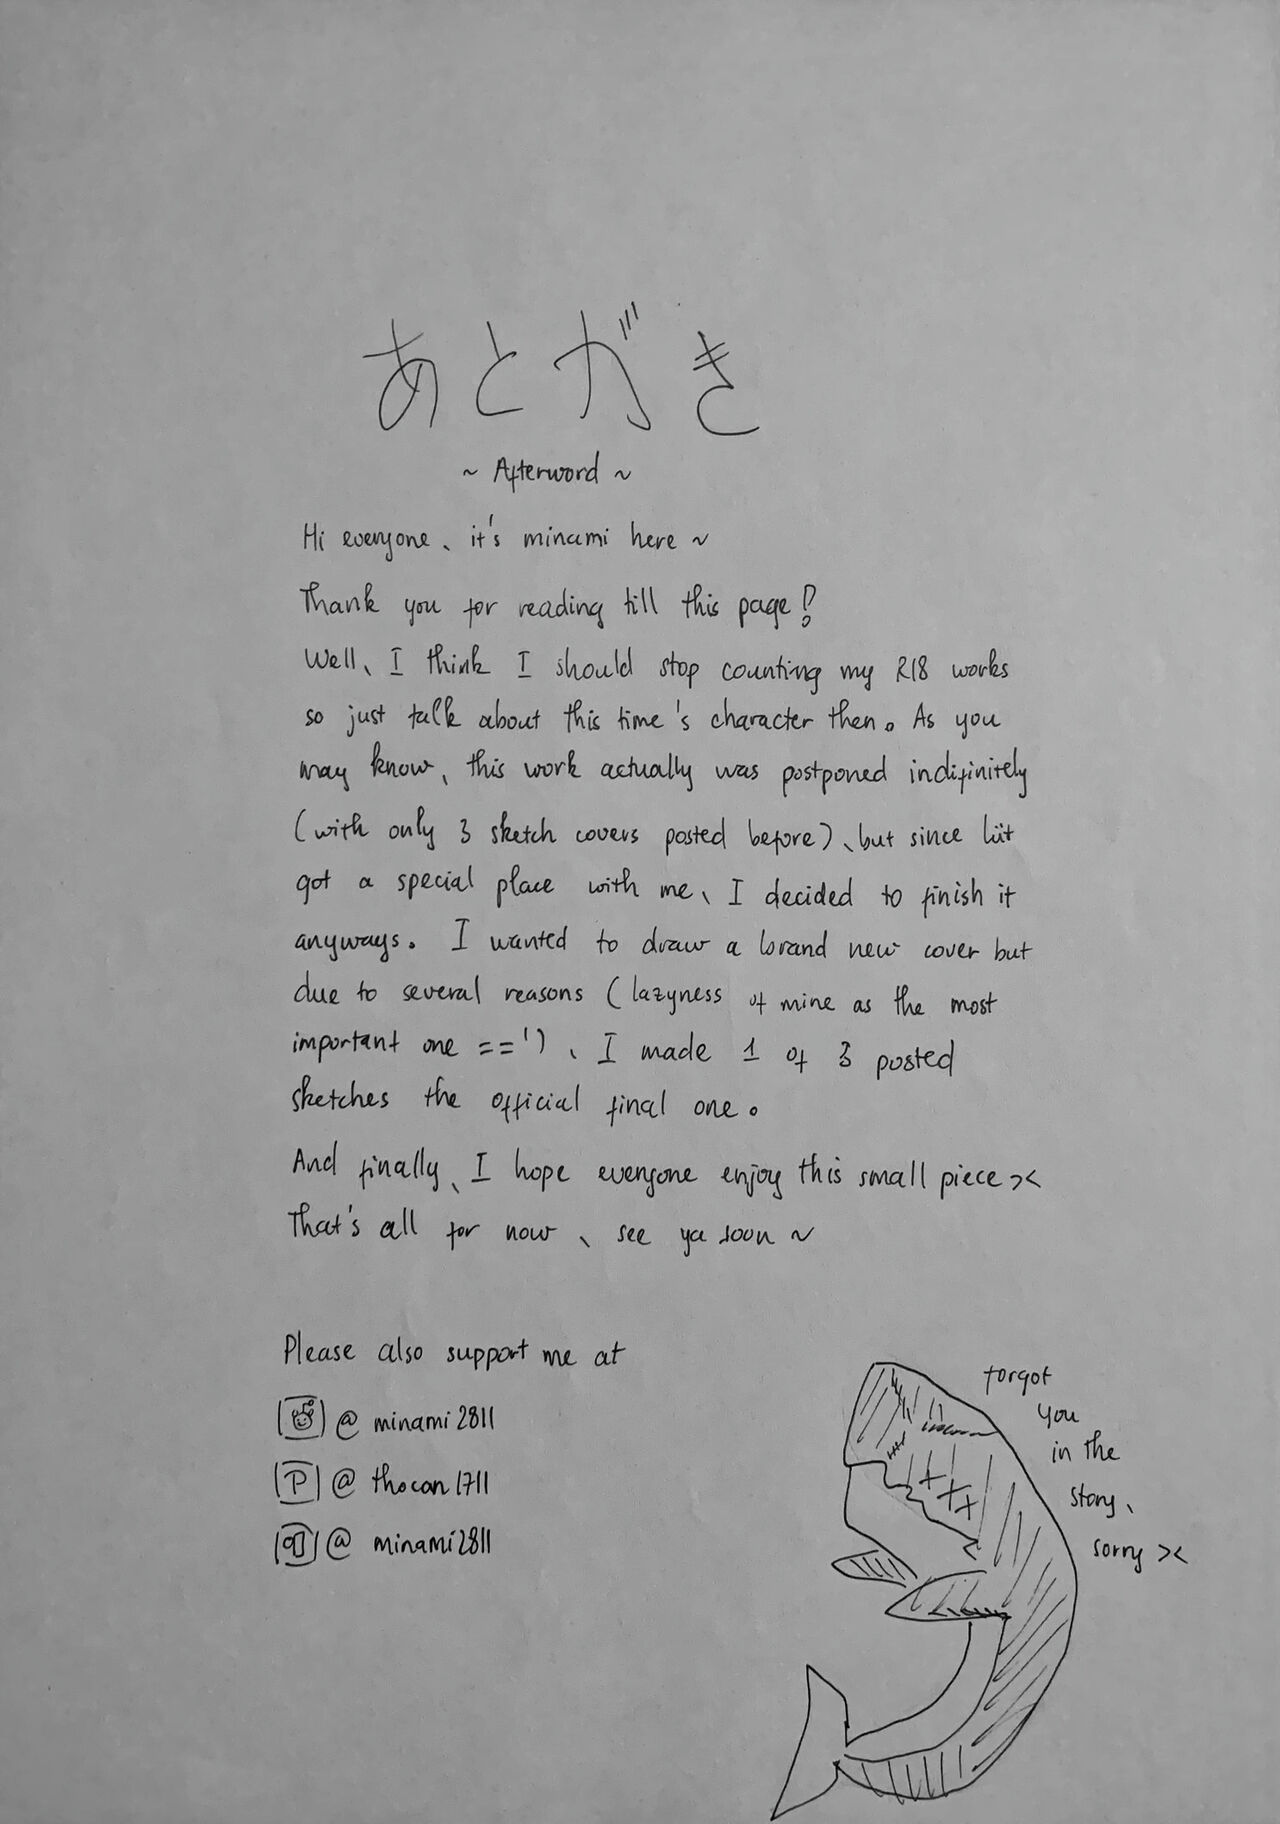 あとがき
~ Afterword ~
Hi everyone、it's minami here ~
Thank you for reading till this page!
Well、I think I should stop counting my R18 works
so just talk about this time's character then。As you
may know、this work actually was postponed indifinitely
(with only 3 sketch covers posted before)、but since
got a special place with me、I decided to finish it
anyways。I wanted to draw a brand new cover but
due to several reasons (lazyness of mine as the most
important one ==')、I made 1 of 3 posted
sketches the official final one。
And finally、I hope everyone enjoy this small piece ><
That's all for now、see ya soon ~
Please also support me at
@ minami2811
P @ thocon1711
@ minami2811
forgot
you
in the
story、
sorry ><